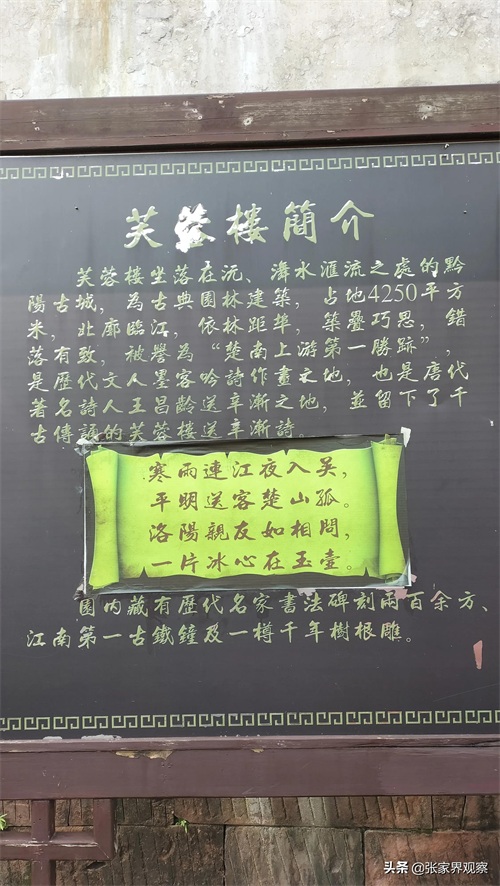 芙蓉樓簡介
芙蓉樓坐落在沅、潕水滙流之處的黔
陽古城，為古典園林建築，占地4250平方
米，北廓臨江，依林距埠，築疊巧思，錯
落有致，被譽為“楚南上游第一勝跡”，
是歷代文人墨客吟詩作畫之地，也是唐代
著名詩人王昌齡送辛漸之地，並留下了千
古傳誦的芙蓉樓送辛漸詩。
寒雨連江夜入吴，
平明送客楚山孤。
洛陽親友如相問，
一片冰心在玉壺。
園内藏有歷代名家書法碑刻兩百余方、
江南第一古鐵鐘及一樽千年樹根雕。
头条 @张家界观察